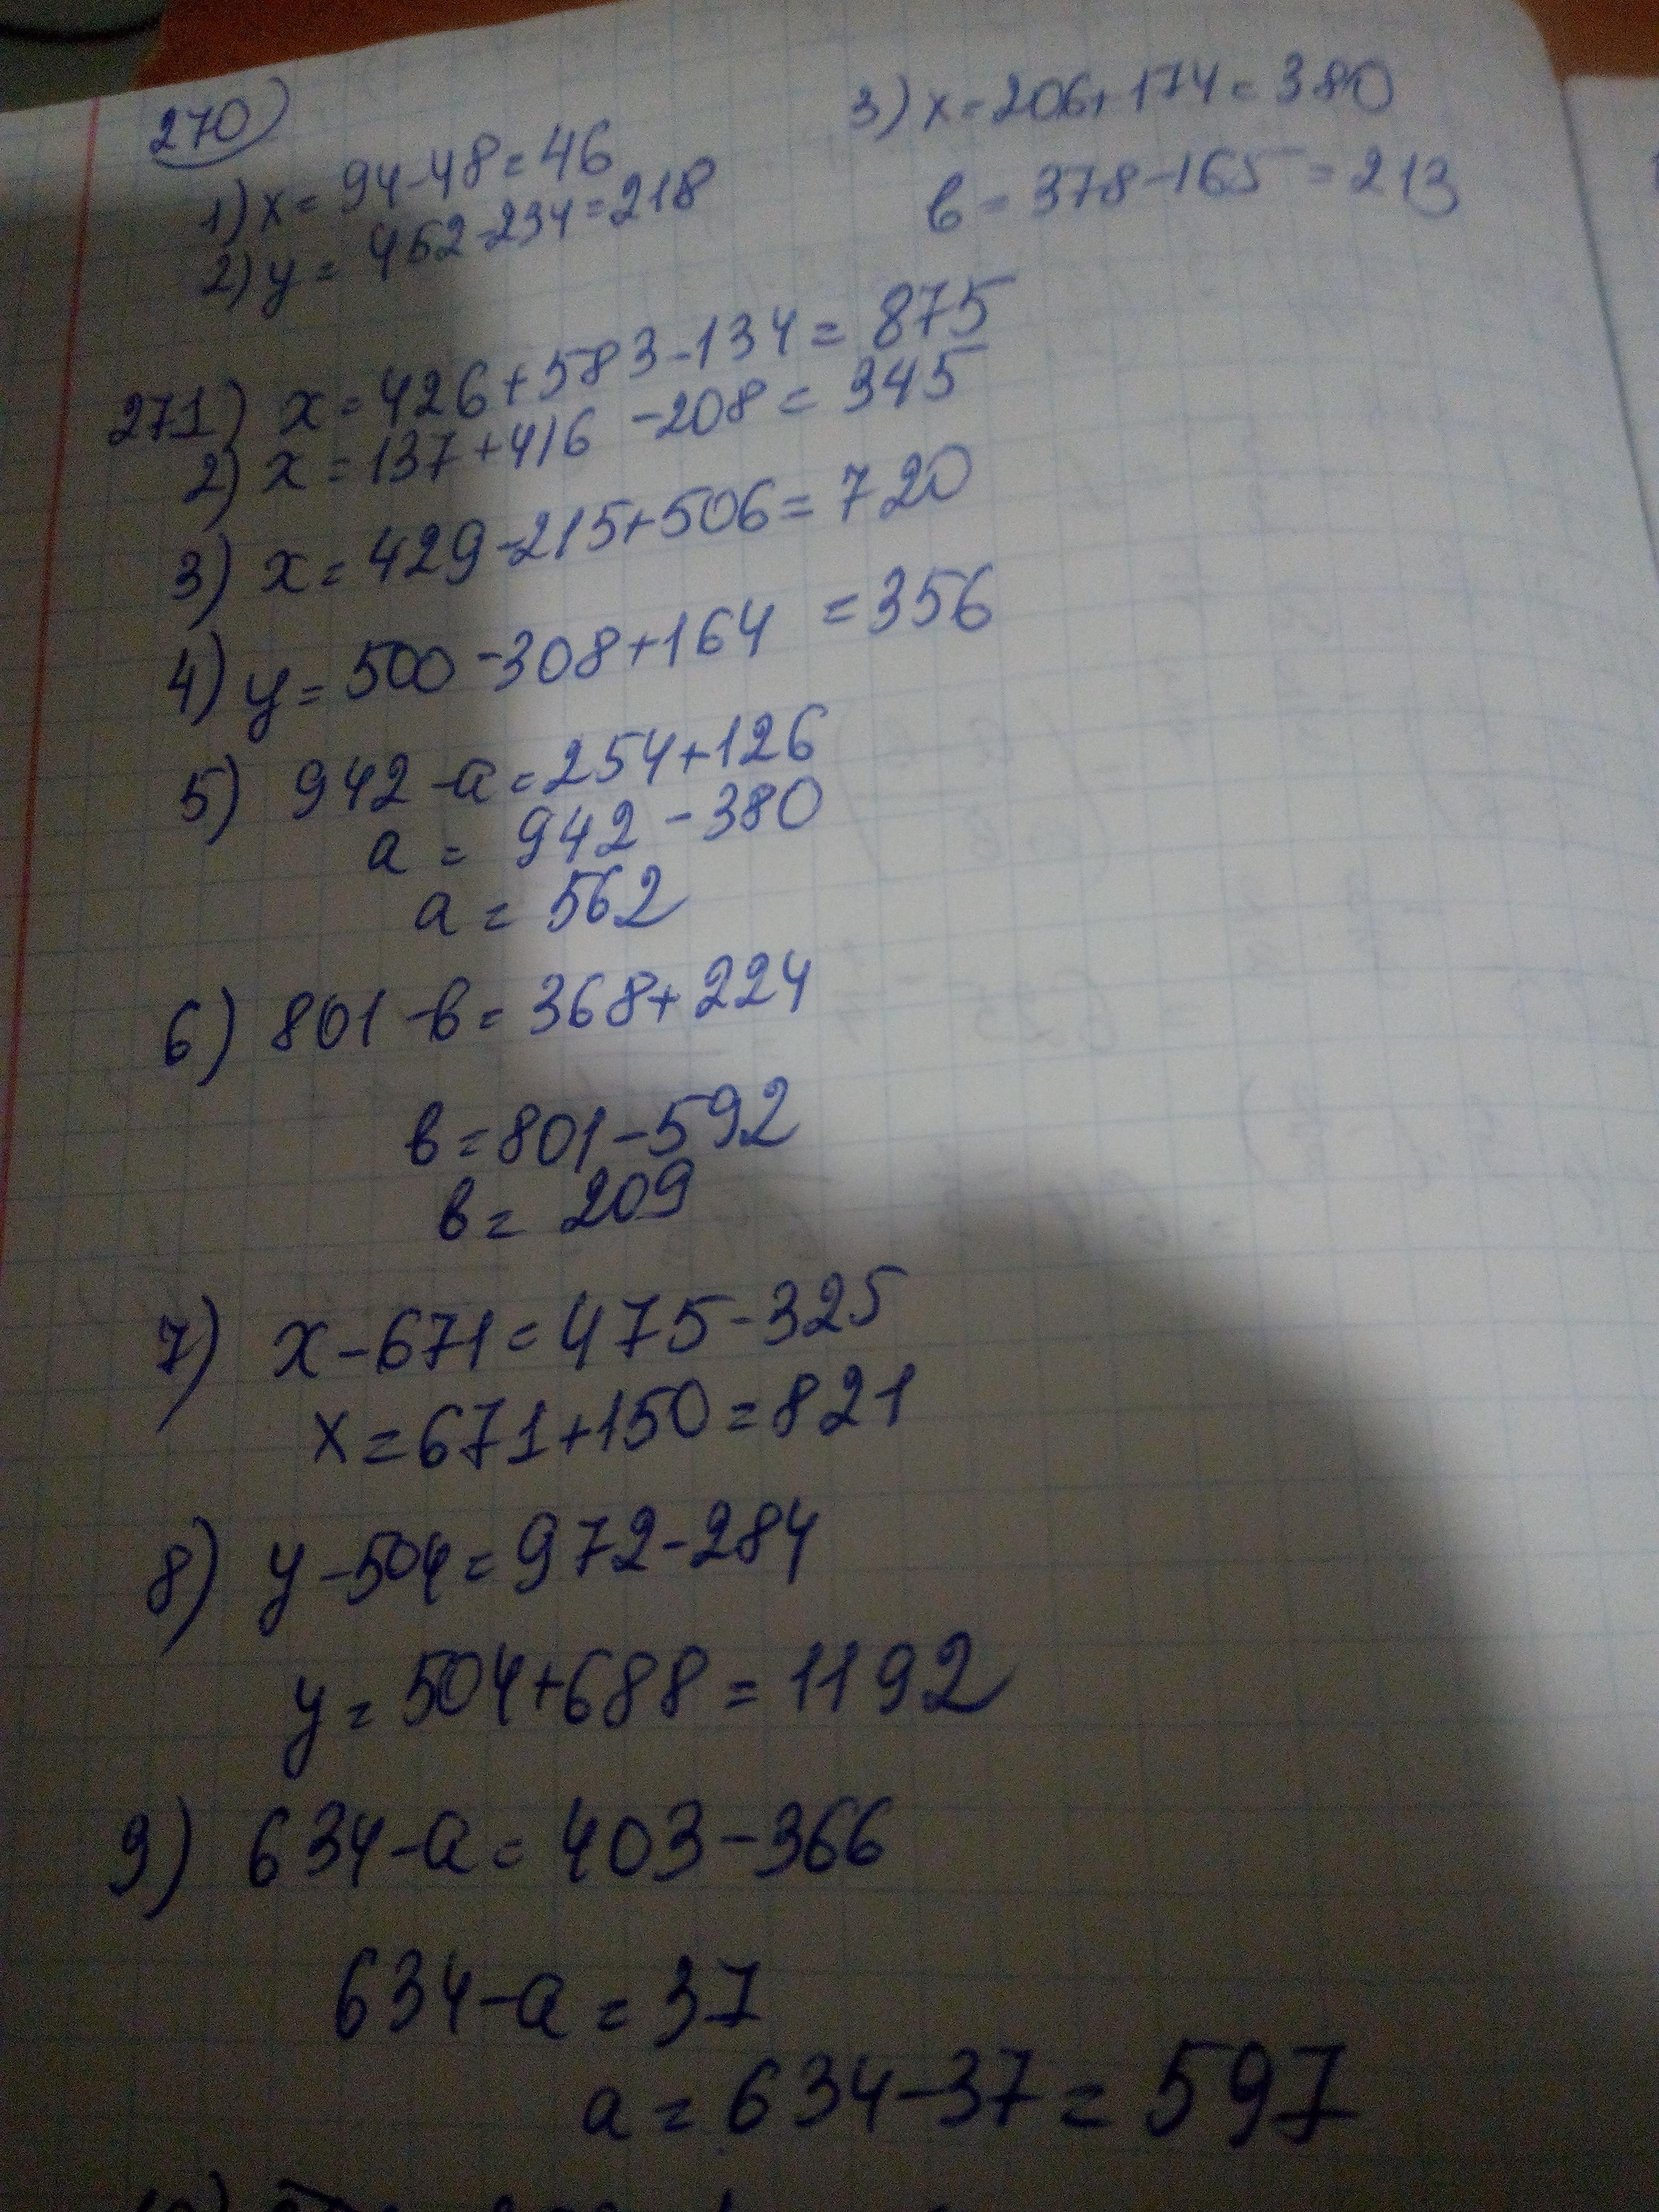 270)
1) x = 94-48 = 46
2) y = 452-234 = 218
3) x = 206+174 = 380
в = 378-165 = 213
271) x = 426+583-134 = 875
2) x = 137+416 -208 = 345
3) x = 429-215+506 = 720
4) y = 500 -308+164 = 356
5) 942 -a = 254+126
a = 942 -380
a = 562
6) 801 -в = 368+224
в = 801-592
в = 209
7) x-671 = 475-325
x = 671+150 = 821
8) y-504 = 972-284
y = 504+688 = 1192
9) 634-a = 403-366
634-a = 37
a = 634-37 = 597